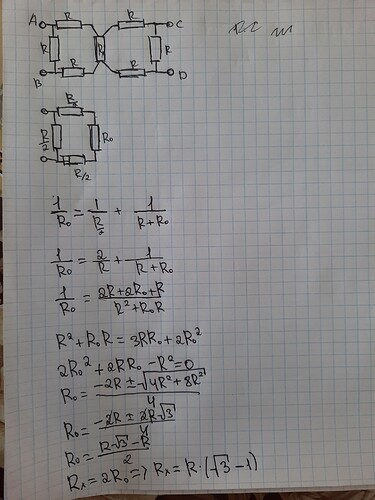 A R R C
R R R
B R R D
R/2
R/2 R₀
R/2
1/R₀ = 1/(R/2) + 1/(R+R₀)
1/R₀ = 2/R + 1/(R+R₀)
1/R₀ = (2R+2R₀+R)/(R²+R₀R)
R²+R₀R = 3RR₀+2R₀²
2R₀²+2RR₀-R²=0
R₀ = (-2R±√(4R²+8R²))/4
R₀ = (-2R±2R√3)/4
R₀ = (R√3-R)/2
Rₓ = 2R₀ => Rₓ = R·(√3-1)